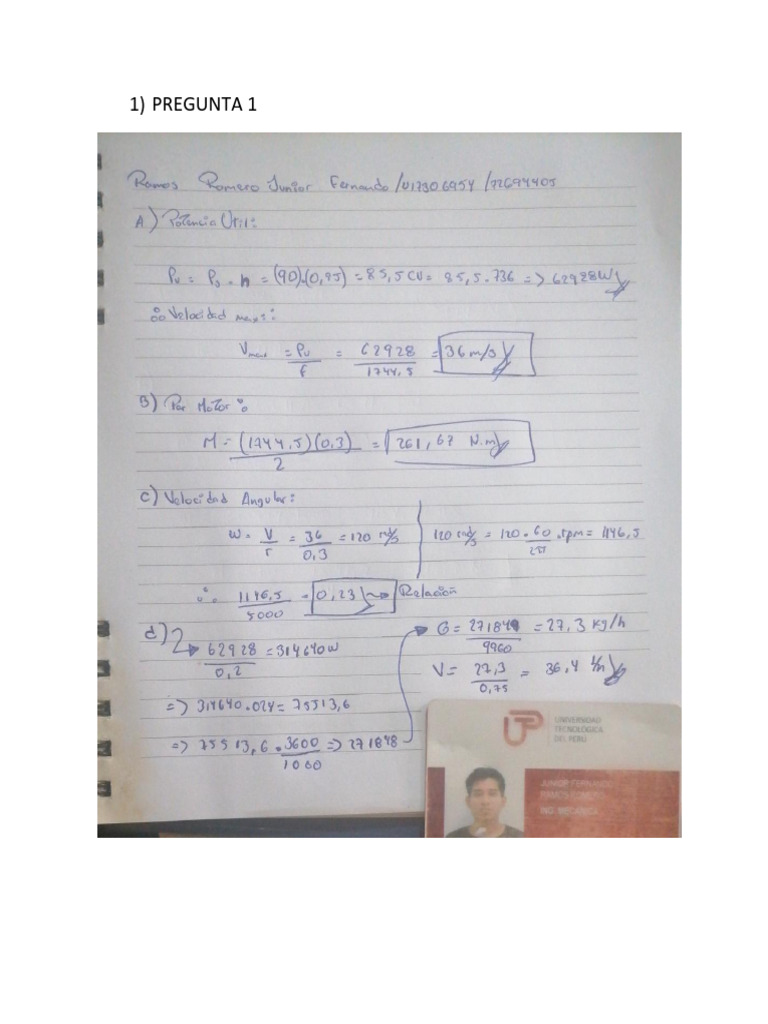 1) PREGUNTA 1
Ramos Romero Junior Fernando /U17306954 /72694405
A) Potencia Util:
Pu = Ps . n = (90).(0,95) = 85,5 CV = 85,5 . 736 => 62928W
∴ Velocidad max::
Vmax = Pu/f = 62928/1744,5 = 36 m/s
B) Par Motor:
M = (1744,5)(0,3)/2 = 261,67 N.m
c) Velocidad Angular:
w = V/r = 36/0,3 = 120 rad/s
120 rad/s = 120 . 60/2π . rpm = 1146,5
∴ 1146,5/5000 = 0,23 → Relación
d) 62928/0,2 = 314640W
=> 314640 . 024 = 75513,6
=> 75513,6 . 3600/1000 => 271848
G = 271849/9960 = 27,3 kg/h
V = 27,3/0,75 = 36,4 l/h
UTP
UNIVERSIDAD
TECNOLOGICA
DEL PERU
JUNIOR FERNANDO
RAMOS ROMERO
ING. MECANICA